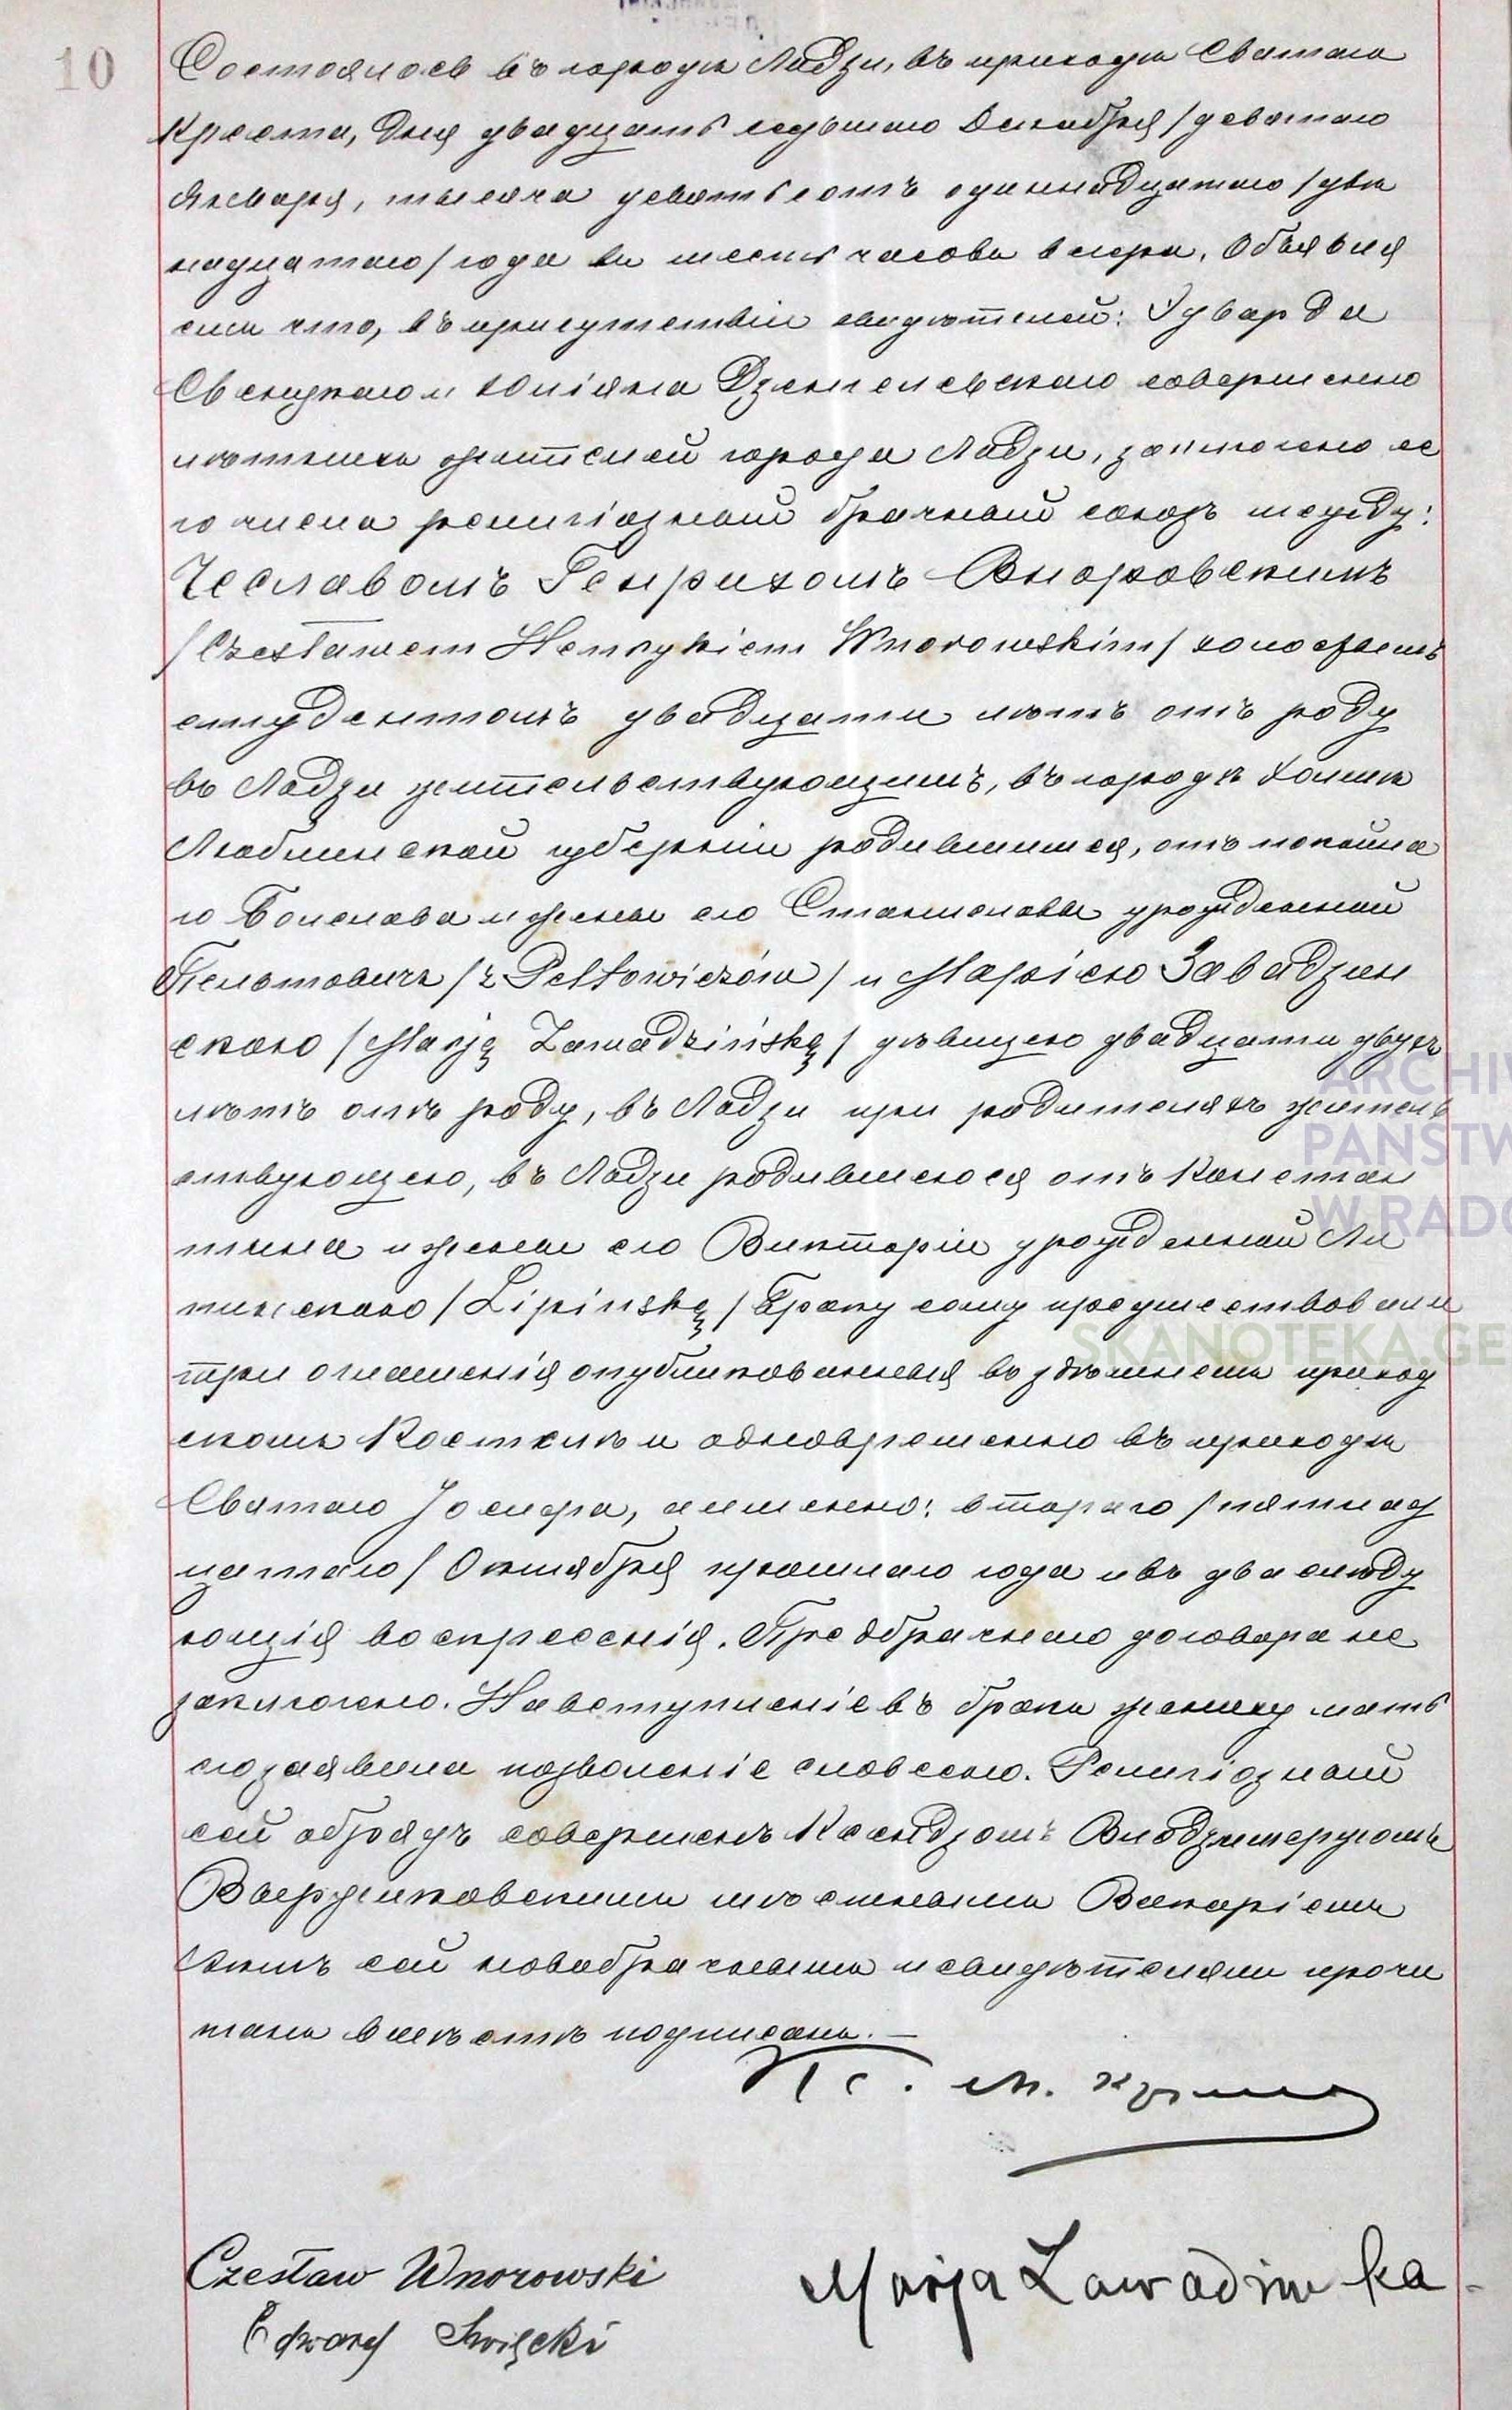 10
Состоялось въ городѣ Лодзи, въ приходѣ Святаго
Креста, дня двадцать седьмаго Декабря / девятаго
Января, тысяча девятьсотъ одиннадцатаго / двѣ
надцатаго / года въ шесть часовъ вечера. Объявля
емъ что, въ присутствіи свидѣтелей: Эдварда
Свенцкаго и Юліяна Дзенгелевскаго совершенно
лѣтнихъ жителей города Лодзи, заключено се
го числа религіозный брачный союзъ между:
Чеславомъ Генрихомъ Вноровскимъ
/ Czesławem Henrykiem Wnorowskim / холостымъ
студентомъ двадцати лѣтъ отъ роду
въ Лодзи жительствующимъ, въ городѣ Холмѣ
Люблинской губерніи родившимся, отъ покойна
го Болеслава и жены его Станиславы урожденной
Пельтовичъ / z Peltowiczów / и Маріею Завадзин
скою / Marją Zawadzińską / дѣвицею двадцати двухъ
лѣтъ отъ роду, въ Лодзи при родителяхъ житель
ствующею, въ Лодзи родившеюся отъ Констан
тина и жены его Викторіи урожденной Ли
пинскою / Lipińską / Браку сему предшествовали
три оглашенія опубликованныя въ здѣшнемъ приход
скомъ Костелѣ и одновременно въ приходѣ
Святаго Іосифа, именно: втораго / пятнад
цатаго / Октября прошлаго года и въ два слѣду
ющія воскресенія. Предбрачнаго договора не
заключено. На вступленіе въ бракъ жениху мать
его заявила позволеніе словесно. Религіозный
сей обрядъ совершенъ Ксендзомъ Влодзимержомъ
мѣстнымъ Викаріемъ
Актъ сей новобрачными и свидѣтелями прочи
танъ вмѣстѣ подписанъ. —
Czesław Wnorowski
Marja Zawadzińska
Edward Święcki
ARCHIW
PAŃSTW
W RADO
SKANOTEKA.GE